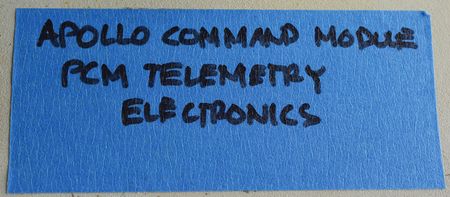 APOLLO COMMAND MODULE
PCM TELEMETRY
ELECTRONICS